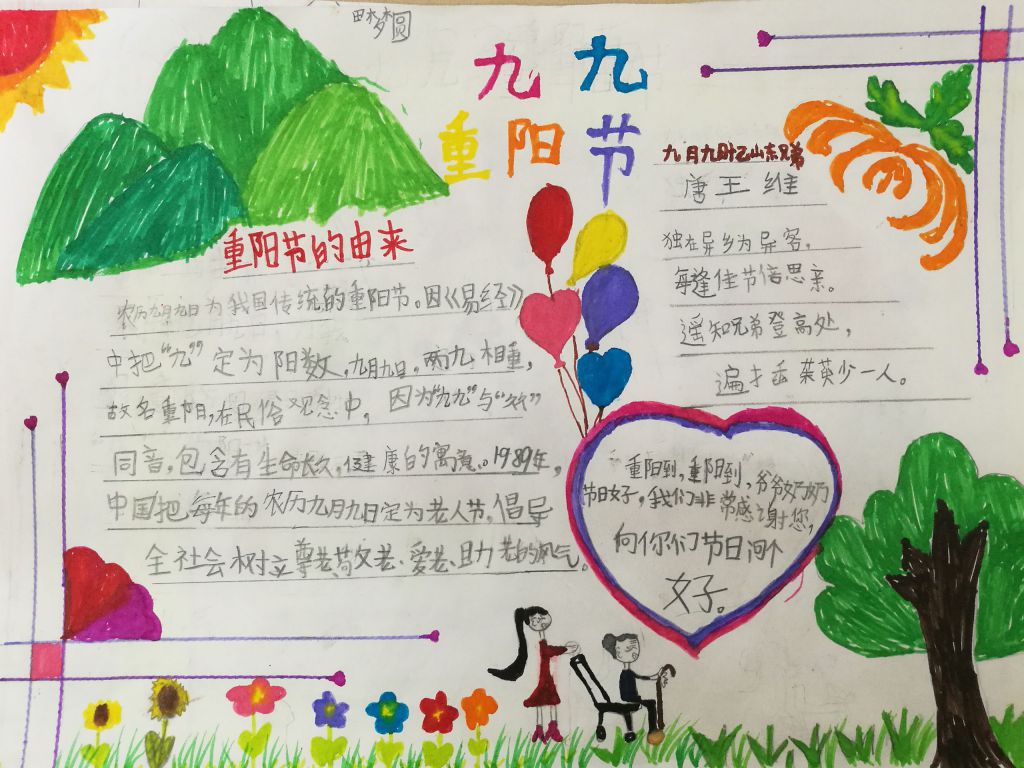 田梦圆
九九
重阳节
重阳节的由来
农历九月九日为我国传统的重阳节。因《易经》
中把“九”定为阳数,九月九日,两九相重,
故名重阳,在民俗观念中,因为“九九”与“久久”
同音,包含有生命长久,健康的寓意。1989年,
中国把每年的农历九月九日定为老人节,倡导
全社会树立尊老、敬老、爱老、助老的风气。
九月九日忆山东兄弟
唐 王维
独在异乡为异客,
每逢佳节倍思亲。
遥知兄弟登高处,
遍插茱萸少一人。
重阳到,重阳到,爷爷奶奶
节日好,我们非常感谢您,
向你们节日问个
好。